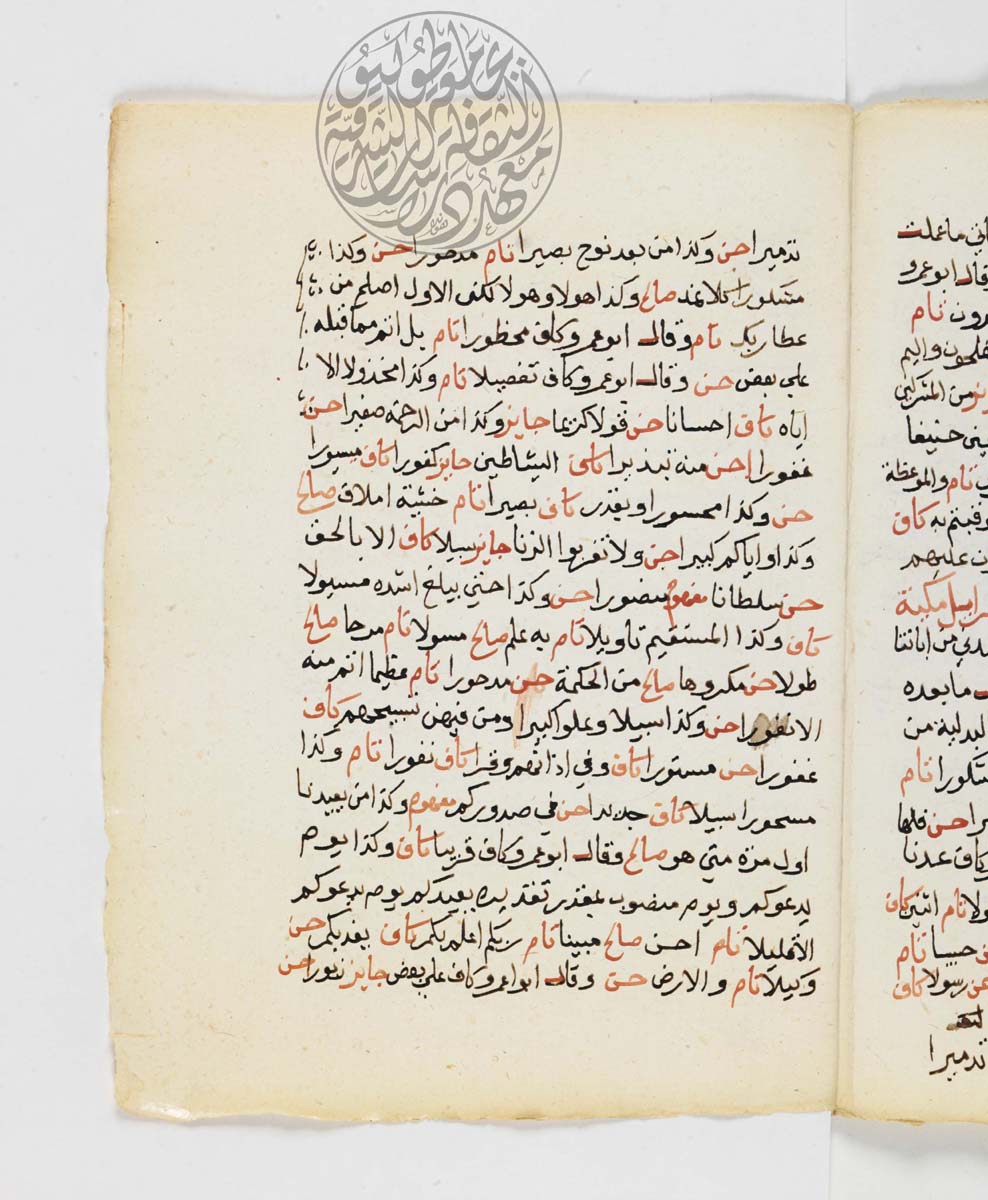 تدميرا حسن وكذا من بعد نوح بصيرا تام مدحورا حسن وكذا
مشكورا كلا نمد صالح وكذا هولا وهولا لكن الاول اصلح من
عطا ربك تام وقال ابو عمرو كاف محظورا تام بل اتم مما قبله
علي بعض حسن وقال ابو عمرو كاف تفضيلا تام وكذا مخذولا الا
اياه كاف احسانا حسن قولا كريما جايز وكذا من الرحمة صغيرا حسن
غفورا احسن منه تبذيرا كاف الشياطين جايز كفورا كاف ميسورا
حسن وكذا محسورا ويقدر كاف بصيرا تام خشية املاق صالح
وكذا واياكم كبيرا حسن ولا تقربوا الزنا جايز سبيلا كاف الا بالحق
حسن سلطانا مفهوم منصورا حسن وكذا حتي يبلغ اشده مسيولا
كاف وكذا المستقيم تاويلا تام به علم صالح مسولا تام مرحا صالح
طولا حسن مكروها صالح من الحكمة حسن مدحورا تام عظيما اتم منه
الا نفورا حسن وكذا سبيلا وعلوا كبيرا ومن فيهن تسبيحهم كاف
غفورا حسن مستورا كاف وفي اذانهم وقرا كاف نفورا تام وكذا
مسحورا سبيلا كاف جديدا حسن في صدوركم مفهوم وكذا من يعيدنا
اول مرة متي هو صالح وقال ابو عمرو كاف قريبا كاف وكذا يوم
يدعوكم ويوم منصوب بمقدر تقديره يعيدكم يوم يدعوكم
الا قليلا تام احسن صالح مبينا تام ربكم اعلم بكم كاف يعذبكم حسن
وكيلا تام والارض حسن وقال ابوا عمرو كاف علي بعض جايز زبورا حسن
ما عملت
قال ابو عمرو
تام
من المشركين
حنيفا
تام والموعظة
عوقبتم به كاف
عليهم
مكية
ما بعده
تام
حسن
تام اثنين كاف
تام
رسولا كاف
تدميرا